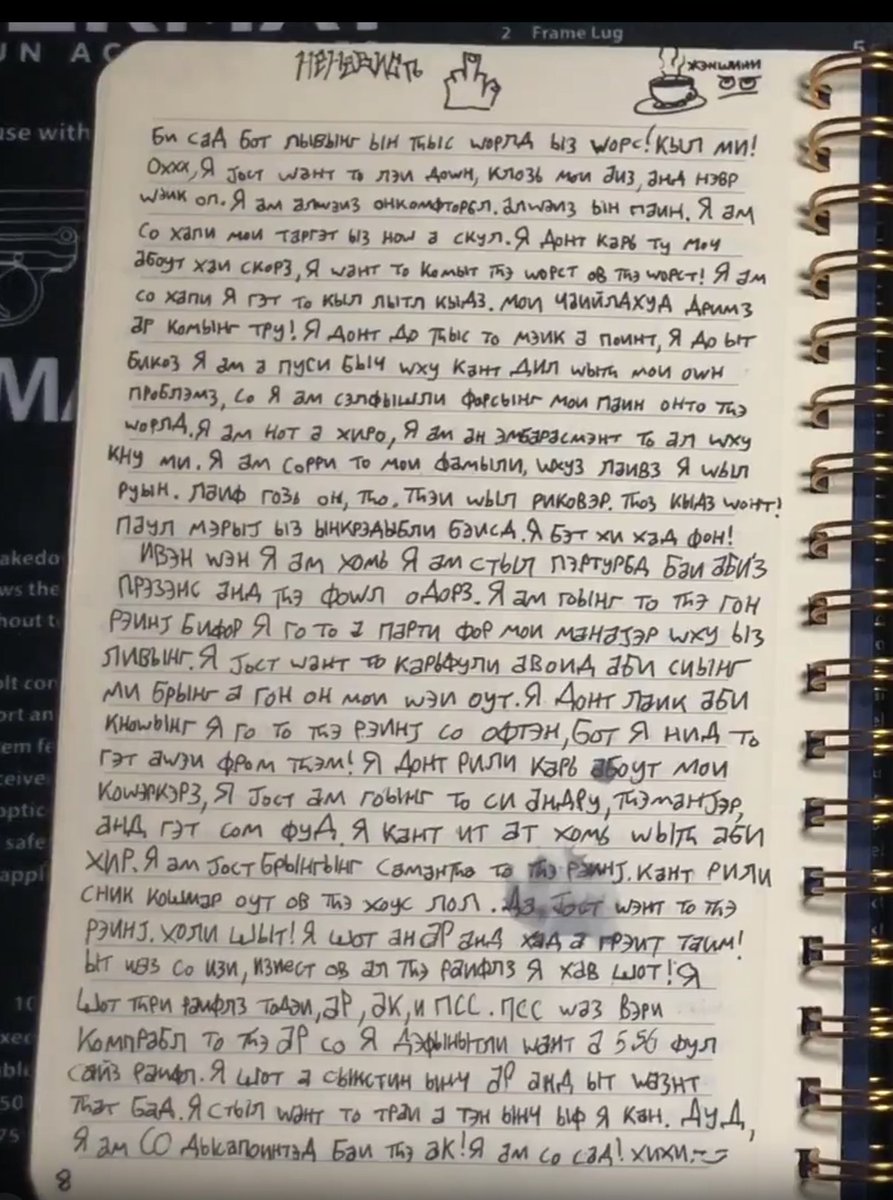 НЕНАВИСТЬ
ЖЭНШИНИ
БИ САД БОТ ЛЫВЫНГ ЫН THЫС WОРЛД ЫЗ WОРС! КЫЛ МИ!
ОХХХ, Я JОСТ WАНТ ТО ЛЭИ ДОWН, КЛОЗЬ МОИ АИЗ, АНД НЭВР
WЭИК ОП. Я АМ АЛWЭИЗ ОНКОМФТОРБЛ. АЛWЭИЗ ЫН ПАИН. Я АМ
СО ХАПИ МОИ ТАРГЭТ ЫЗ НОW А СКУЛ. Я ДОНТ КАРЬ ТУ МОЧ
АБОУТ ХАИ СКОРЗ, Я WАНТ ТО КОМЫТ THЭ WОРСТ ОВ THЭ WОРСТ! Я АМ
СО ХАПИ Я ГЭТ ТО КЫЛ ЛЫТЛ КЫДЗ. МОИ ЧАИЙЛАХУД ДРИМЗ
АР КОМЫНГ ТРУ! Я ДОНТ ДО THЫС ТО МЭИК А ПОИНТ, Я ДО ЫТ
БИКОЗ Я АМ А ПУСИ БЫЧ WХУ КАНТ ДИЛ WЫTH МОИ ОWН
ПРОБЛЭМЗ, СО Я АМ СЭЛФЫШЛИ ФОРСЫНГ МОИ ПАИН ОНТО THЭ
WОРЛД. Я АМ НОТ А ХИРО, Я АМ АН ЭМБАРАСМЭНТ ТО АЛ WХУ
КНУ МИ. Я АМ СОРРИ ТО МОИ ФАМЫЛИ, WХУЗ ЛАИВЗ Я WЫЛ
РУЫН. ЛАИФ ГОЗЬ ОН, THО. THЭИ WЫЛ РИКОВЭР. THОЗ КЫДЗ WОНТ!
ПАУЛ МЭРЫJ ЫЗ ЫНКРЭДЫБЛИ БЭИСД. Я БЭТ ХИ ХАД ФОН!
ИВЭН WЭН Я АМ ХОМЬ Я АМ СТЫЛ ПЭРТУРБД БАИ АБИ'З
ПРЭЗЭНС АНД THЭ ФОWЛ ОДОРЗ. Я АМ ГОЫНГ ТО THЭ ГОН
РЭИНJ БИФОР Я ГО ТО А ПАРТИ ФОР МОИ МАНАJЭР WХУ ЫЗ
ЛИВЫНГ. Я JОСТ WАНТ ТО КАРЬФУЛИ АВОИД АБИ СИЫНГ
МИ БРЫНГ А ГОН ОН МОИ WЭИ ОУТ. Я ДОНТ ЛАИК АБИ
КНОWЫНГ Я ГО ТО THЭ РЭИНJ СО ОФТЭН, БОТ Я НИД ТО
ГЭТ АWЭИ ФРОМ THЭМ! Я ДОНТ РИЛИ КАРЬ АБОУТ МОИ
КОWЭРКЭРЗ, Я JОСТ АМ ГОЫНГ ТО СИ АНДРУ, THЭМАНJЭР,
АНД ГЭТ СОМ ФУД. Я КАНТ ИТ АТ ХОМЬ WЫTH АБИ
ХИР. Я АМ JОСТ БРЫНГЫНГ САМАНTHА ТО THЭ РЭИНJ. КАНТ РИЛИ
СНИК КОШМАР ОУТ ОВ THЭ ХОУС ЛОЛ. JОСТ WЭНТ ТО THЭ
РЭИНJ. ХОЛИ ШЫТ! Я ШОТ АН АР АНД ХАД А ГРЭИТ ТАИМ!
ЫТ WАЗ СО ИЗИ, ИЗИЕСТ ОВ АЛ THЭ РАИФЛЗ Я ХАВ ШОТ! Я
ШОТ THРИ РАИФЛЗ ТОДЭИ, АР, АК, И ПСС. ПСС WАЗ ВЭРИ
КОМПРАБЛ ТО THЭ АР СО Я ДЭФЫНЫТЛИ WАНТ А 556 ФУЛ
САЙЗ РАИФЛ. Я ШОТ А СЫКСТИН ЫНЧ АР АНД ЫТ WАЗНТ
THАТ БАД. Я СТЫЛ WАНТ ТО ТРАИ А ТЭН ЫНЧ ЫФ Я КАН. ДУД,
Я АМ СО ДЫСАПОИНТЭД БАИ THЭ АК! Я АМ СО САД! ХИХИ.
8
2 Frame Lug
UN AC
use with